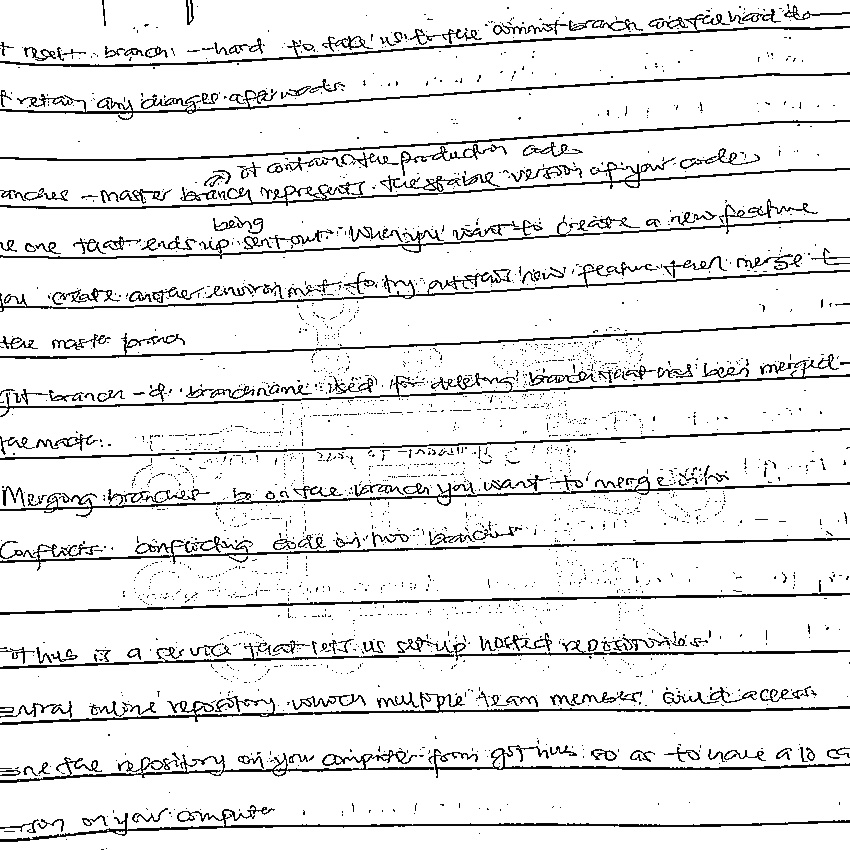 t reset branch --hard to take us to the commit branch and the hard do
t retain any changes afterwards.
it contains the production code
anches - master branch represents the stable version of your code
being
he one that ends up sent out. When you want to create a new feature
you create another environment to try out this new feature then merge t
the master branch
git branch -d branchname used for deleting branch that has been merged
the master.
Merging branches be on the branch you want to merge
Conflicts. conflicting code on two branches
ithub is a service that lets us set up hosted repositories
entral online repository which multiple team members could access
one the repository on you computer from github so as to have a lo ca
ersion on your computer